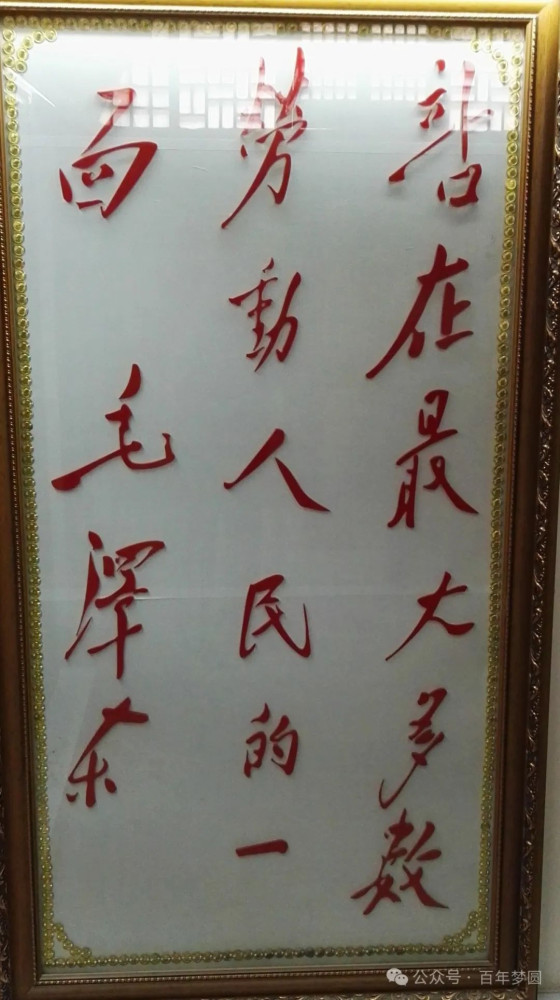 站在最大多數
勞動人民的一
面 毛澤东
公众号 · 百年梦圆